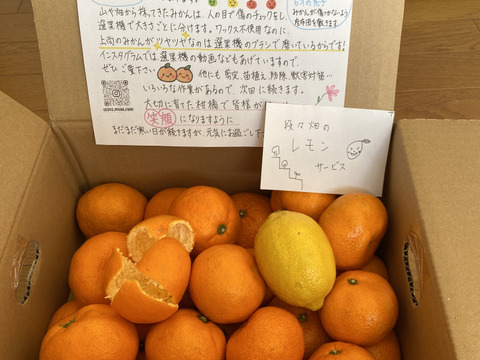 山や畑から採ってきたみかんは、人の目で傷のチェックをし、
選果機で大きさごとに分けます。ワックス不使用なのに、
上尚のみかんがツヤツヤなのは選果機のブラシで磨いているからです!
インスタグラムでは選果機の動画などもあげていますので、
ぜひご覧下さい 他にも剪定、苗植え、防除、獣害対策…
いろいろな作業があるので、次回に続きます。
大切に育てた柑橘で皆様が
笑顔になりますように
まだまだ寒い日が続きますが、元気にお過ごし下
みかんが傷つかないよう
段々畑の
レモン
サービス